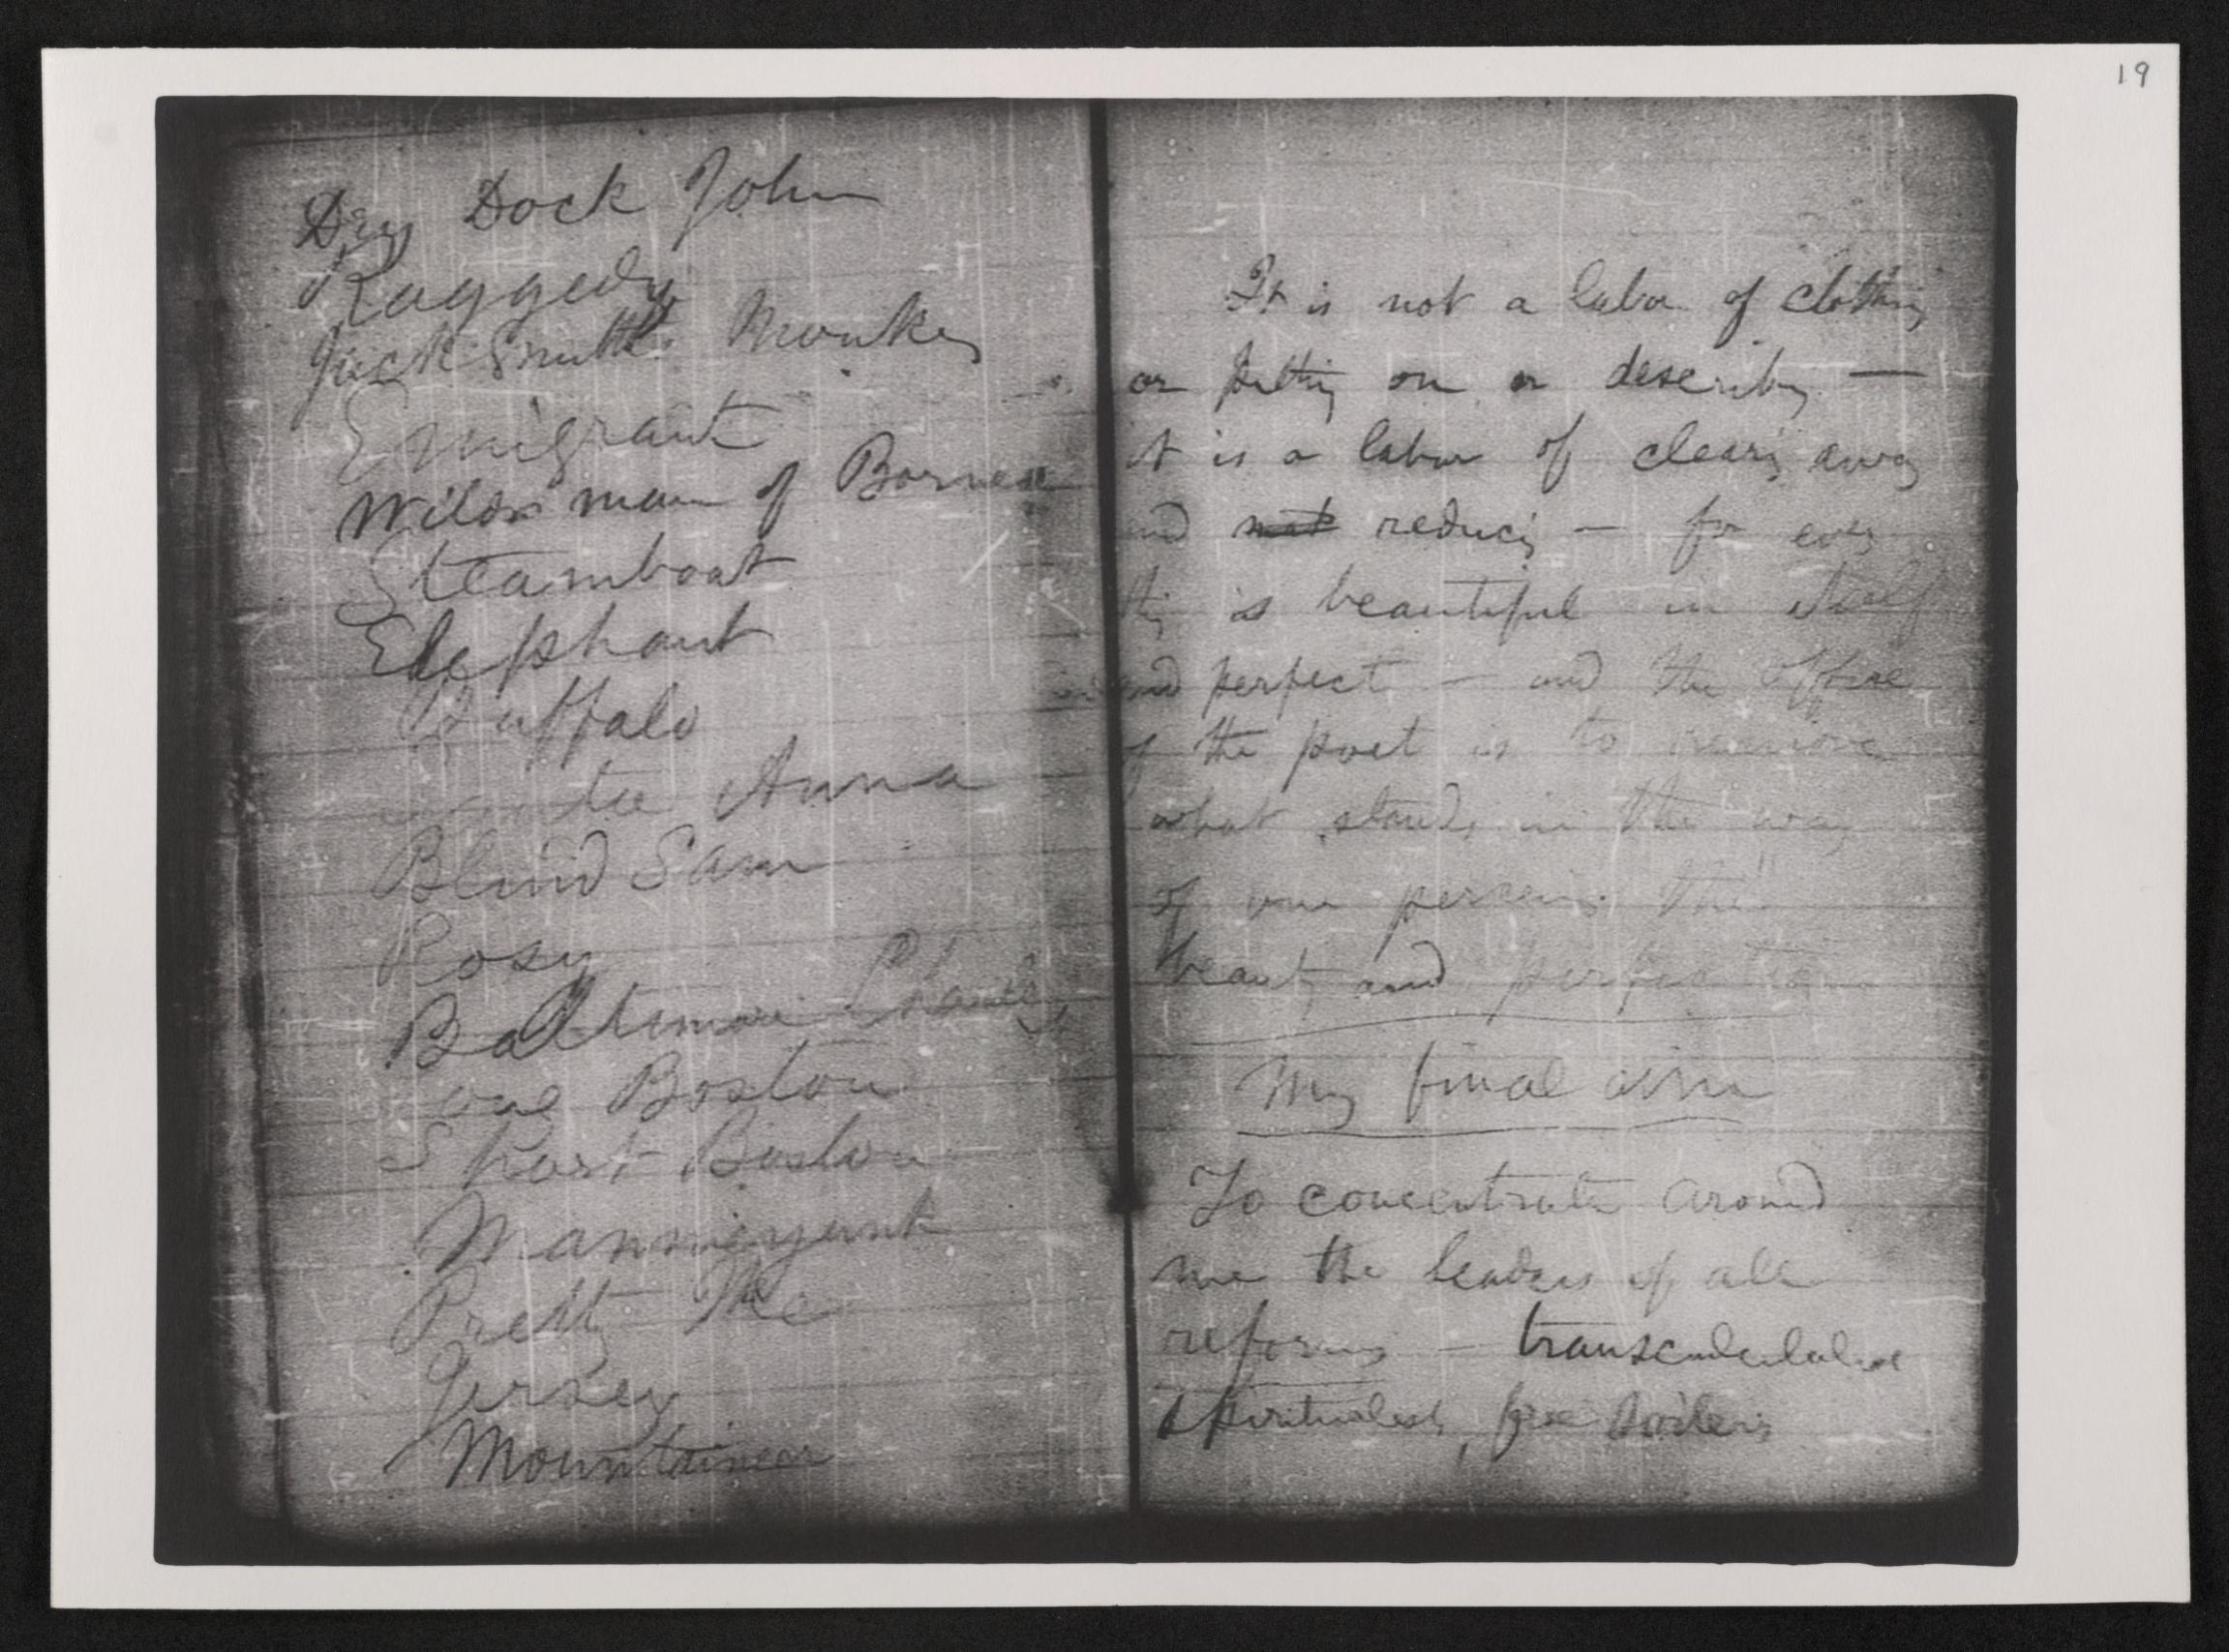 19
Dry Dock John
Raggedy
Jack Smith's Monkey
Emigrant
Wild man of Borneo
Steamboat
Elephant
Buffalo
Anna
Blind Sam
Rosy
Baltimore Charley
Boston
Short Boston
Mannayunk
Pretty Ike
Jersey
Mountaineer
It is not a labor of clothing
or putting on or describing —
it is a labor of clearing away
and not reducing — for every
thing is beautiful in itself
and perfect — and the office
of the poet is to remove
what stands in the way
of our perceiving the
beauty and perfection
My final aim
To concentrate around
me the leaders of all
reforms — transcendentalists
spiritualists, free soilers